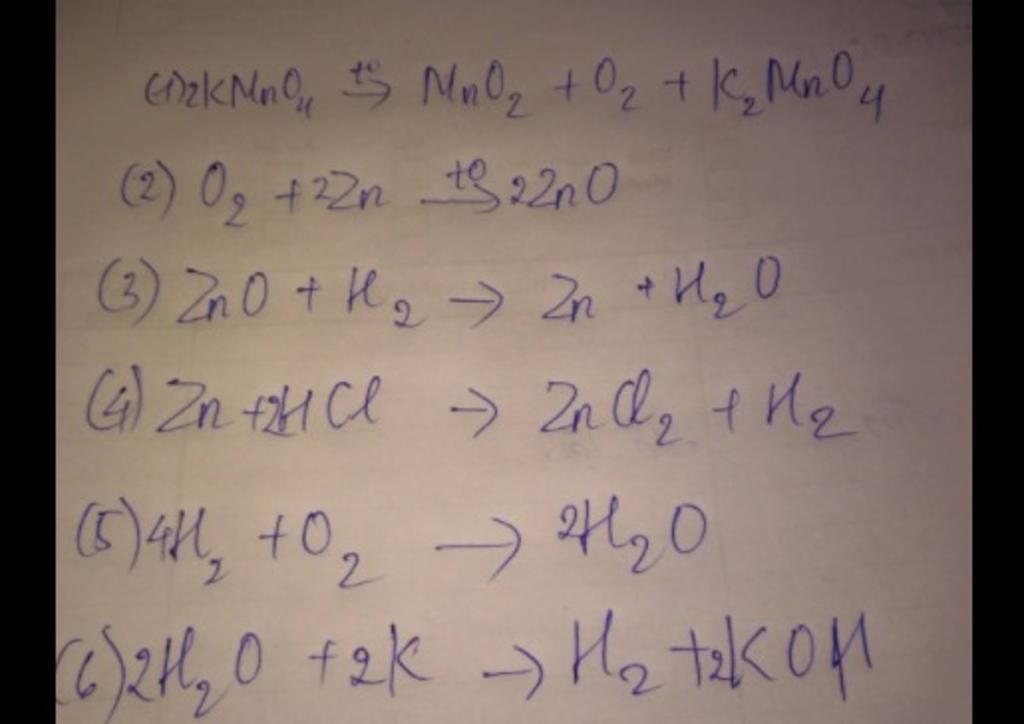 (1) 2KMnO₄ t°→ MnO₂ + O₂ + K₂MnO₄
(2) O₂ + 2Zn t°→ 2ZnO
(3) ZnO + H₂ → Zn + H₂O
(4) Zn + 2HCl → ZnCl₂ + H₂
(5) 4H₂ + O₂ → 2H₂O
(6) 2H₂O + 2K → H₂ + 2KOH